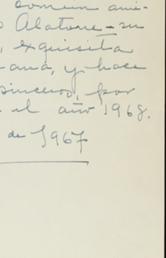 común ami-
Alatorre - su
, exquisita
ana, y hace
sinceros, por
el año 1968.
de 1967